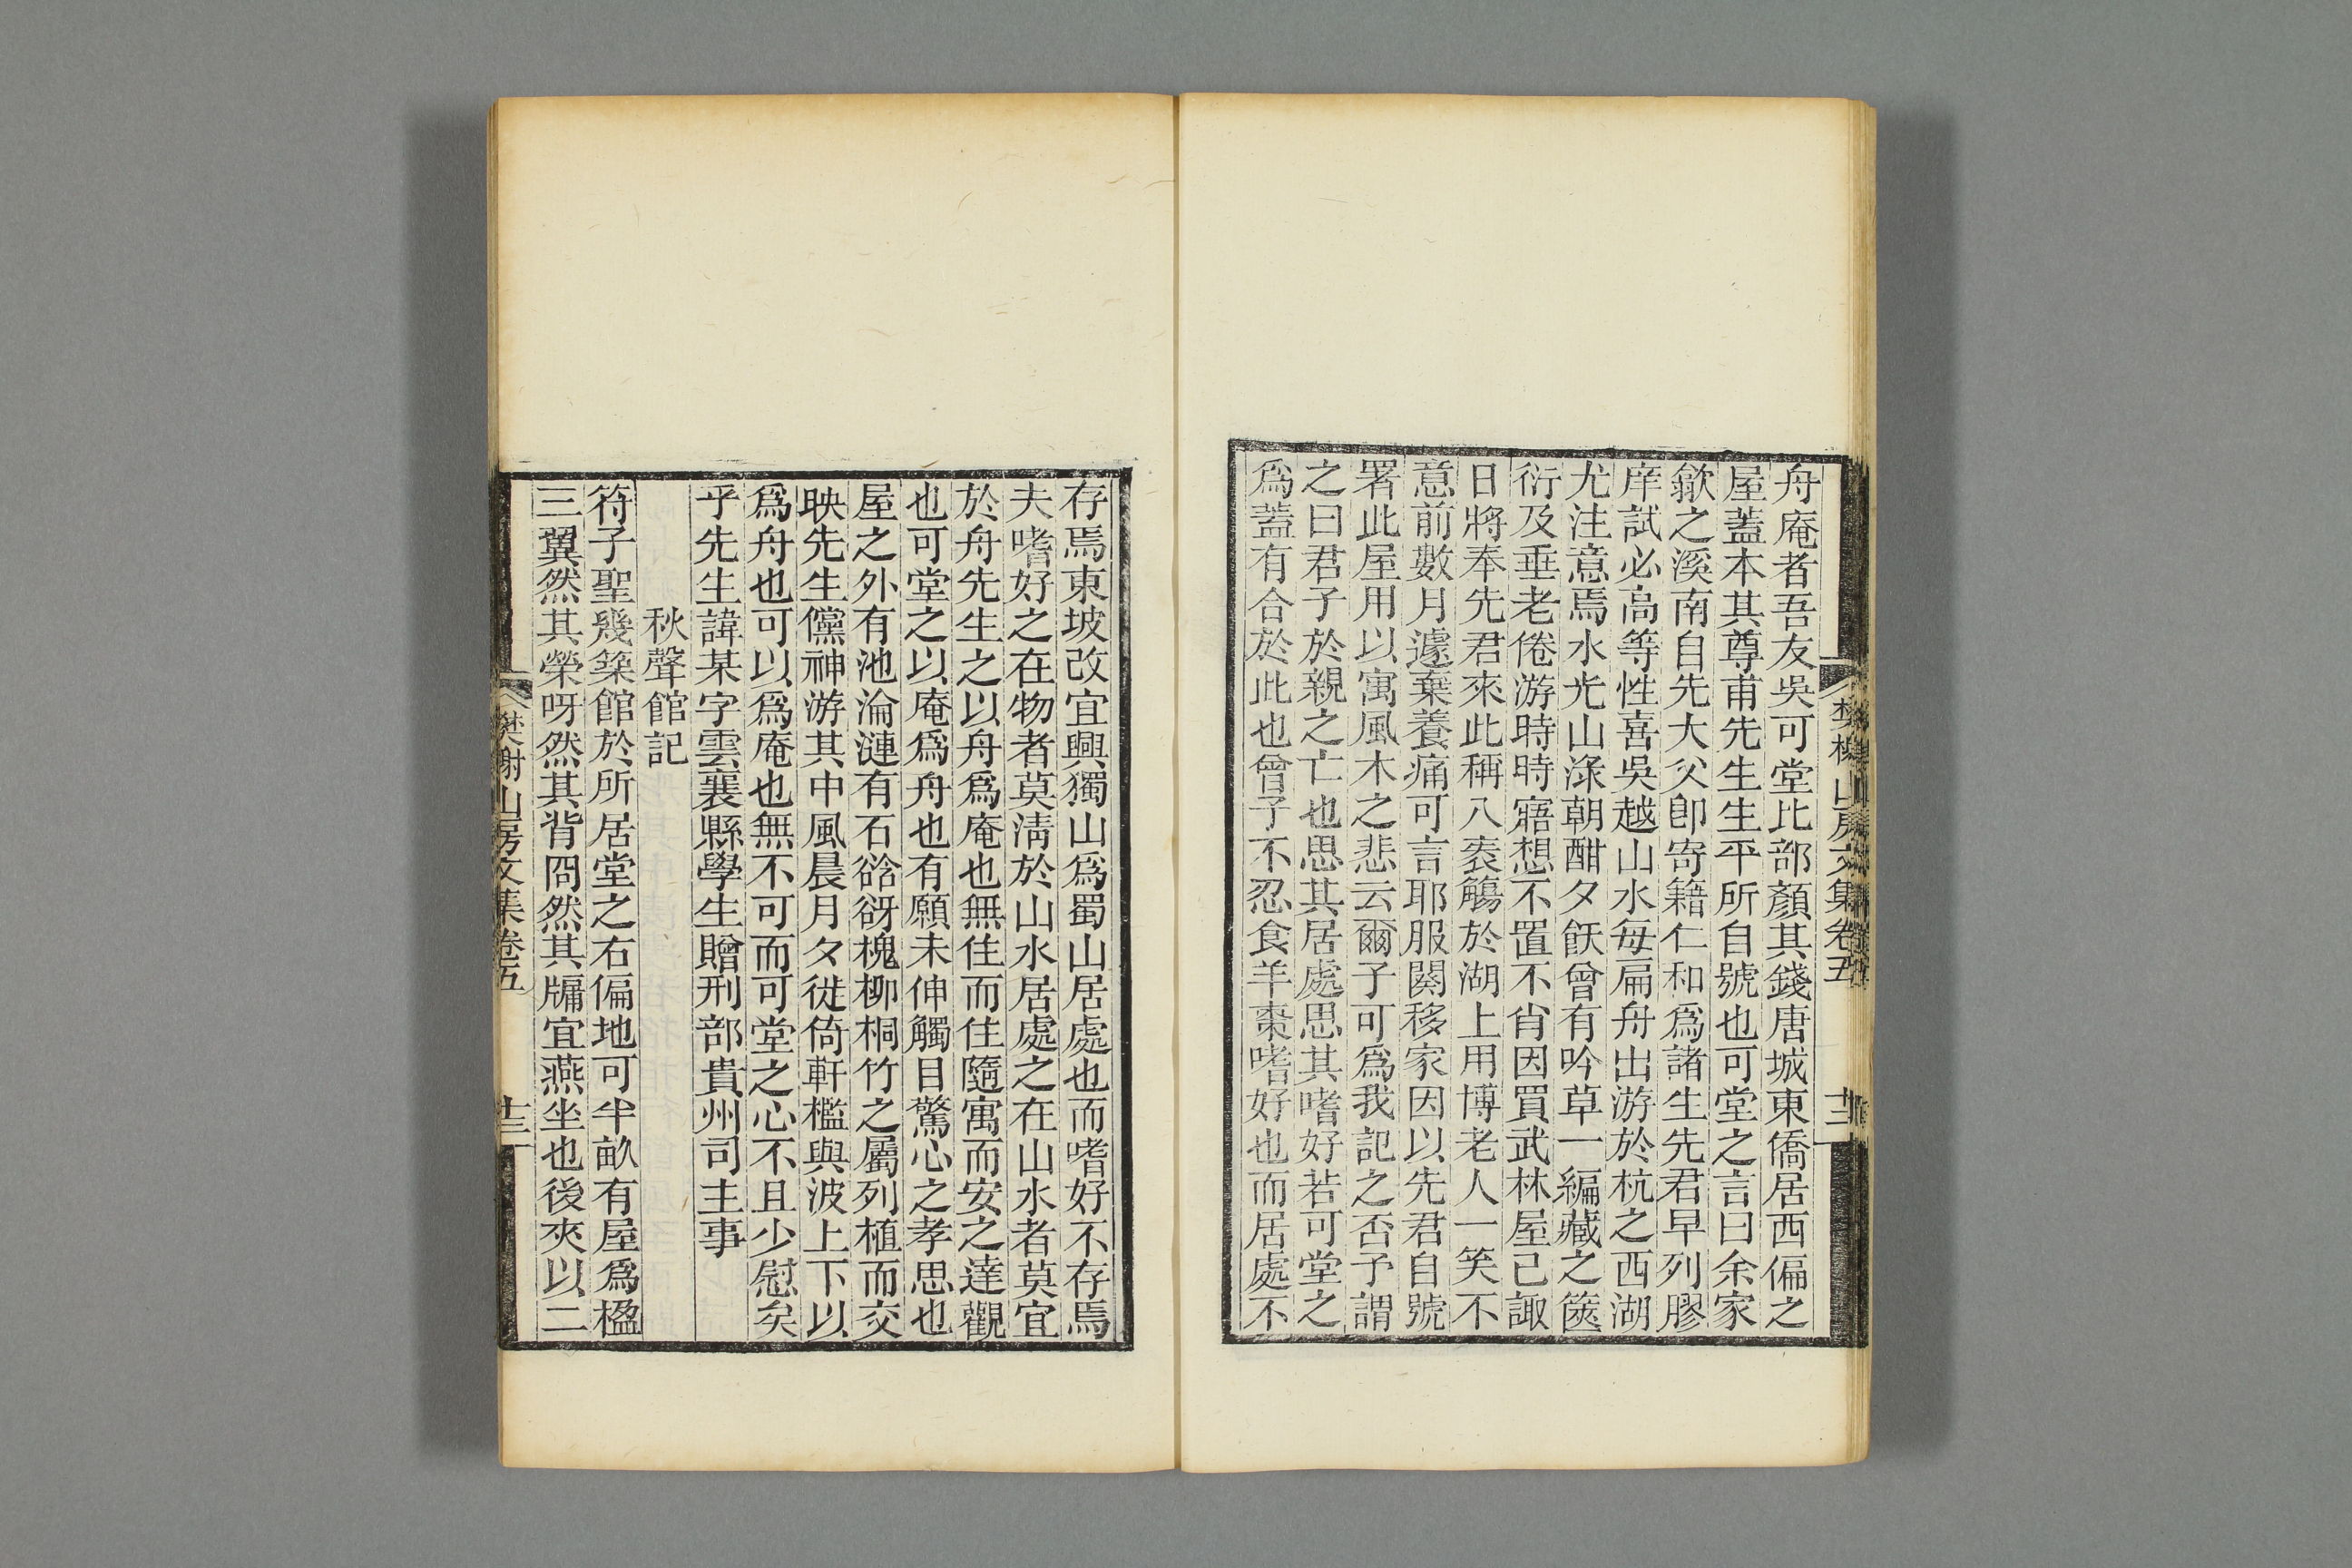 樊榭山房文集卷五
十二
舟庵者吾友吳可堂比部顏其錢唐城東僑居西偏之
屋蓋本其尊甫先生生平所自號也可堂之言曰余家
歙之溪南自先大父卽寄籍仁和爲諸生先君早列膠
庠試必高等性喜吳越山水每扁舟出游於杭之西湖
尤注意焉水光山淥朝酣夕飫曾有吟草一編藏之篋
衍及垂老倦游時時寤想不置不肖因買武林屋己諏
日將奉先君來此稱八袠觴於湖上用博老人一笑不
意前數月遽棄養痛可言耶服闋移家因以先君自號
署此屋用以寓風木之悲云爾子可爲我記之否予謂
之曰君子於親之亡也思其居處思其嗜好若可堂之
爲蓋有合於此也曾子不忍食羊棗嗜好也而居處不
存焉東坡改宜興獨山爲蜀山居處也而嗜好不存焉
夫嗜好之在物者莫淸於山水居處之在山水者莫宜
於舟先生之以舟爲庵也無住而住隨寓而安之達觀
也可堂之以庵爲舟也有願未伸觸目驚心之孝思也
屋之外有池淪漣有石谽谺槐柳桐竹之屬列植而交
映先生儻神游其中風晨月夕徙倚軒檻與波上下以
爲舟也可以爲庵也無不可而可堂之心不且少慰矣
乎先生諱某字雲襄縣學生贈刑部貴州司主事
秋聲館記
符子聖幾築館於所居堂之右偏地可半畝有屋爲楹
三翼然其榮呀然其背冏然其牖宜燕坐也後夾以二
樊榭山房文集卷五
十三